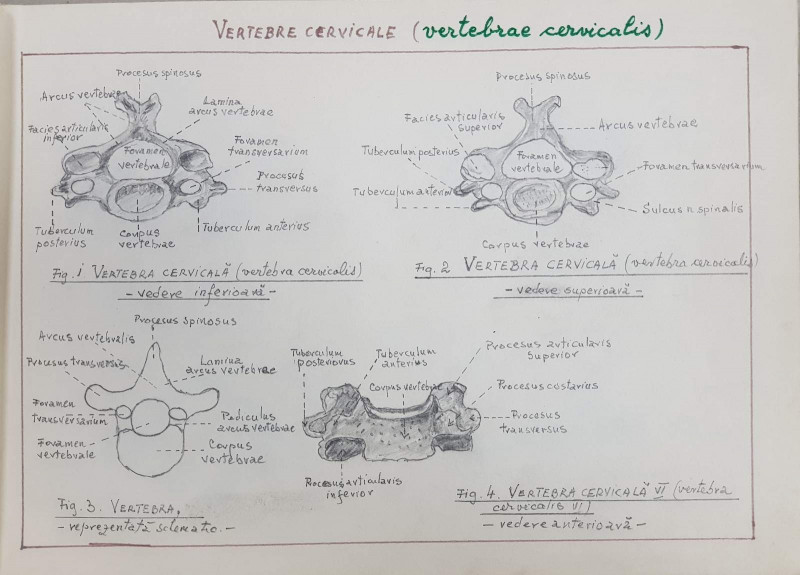 VERTEBRE CERVICALE (vertebrae cervicalis)
Procesus spinosus
Arcus vertebrae
Lamina
arcus vertebrae
Facies articularis
inferior
Foramen
vertebrale
Foramen
transversarium
Procesus
transversus
Tuberculum
posterius
Corpus
vertebrae
Tuberculum anterius
Fig. 1 VERTEBRA CERVICALĂ (vertebra cervicalis)
- vedere inferioară -
Procesus spinosus
Facies articularis
superior
Arcus vertebrae
Tuberculum posterius
Foramen
vertebrale
Foramen transversarium
Tuberculum anterius
Sulcus n spinalis
Corpus vertebrae
Fig. 2 VERTEBRA CERVICALĂ (vertebra cervicalis)
- vedere superioară -
Procesus spinosus
Arcus vertebralis
Procesus transversus
Lamina
arcus vertebrae
Foramen
transversarium
Pediculus
arcus vertebrae
Foramen
vertebrale
Corpus
vertebrae
Fig. 3. VERTEBRA,
- reprezentată schematic. -
Tuberculum
posteriorus
Tuberculum
anterius
Procesus articularis
superior
Corpus vertebrae
Procesus costarius
Procesus
transversus
Rocesus articularis
inferior
Fig. 4. VERTEBRA CERVICALĂ VI (vertebra
cervicalis VI)
- vedere anterioară -